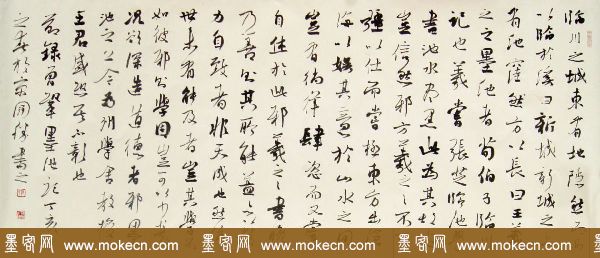 臨川之城東有地隱然而
以臨於溪曰新城新城之
有池窪然方以長曰王羲
之之墨池者荀伯子臨
記也羲嘗張芝臨池
書池水盡黑此為其故
豈信然邪方羲之之不
强以仕而嘗極東方出
海以娛其意於山水之間
豈有徜徉肆恣而又嘗
自休於此邪羲之之書
乃善則其所能蓋
力自致者非天成也然
世未有能及者豈其學
如彼邪則學固豈可以少
况欲深造道德者邪墨
池之上今為州學舍教授
王君盛恐其不彰也
節錄曾鞏墨池記丁亥
之春於京書之
墨客网 www.mokecn.com 墨客网 www.mokecn.com 墨客网 www.mokecn.com